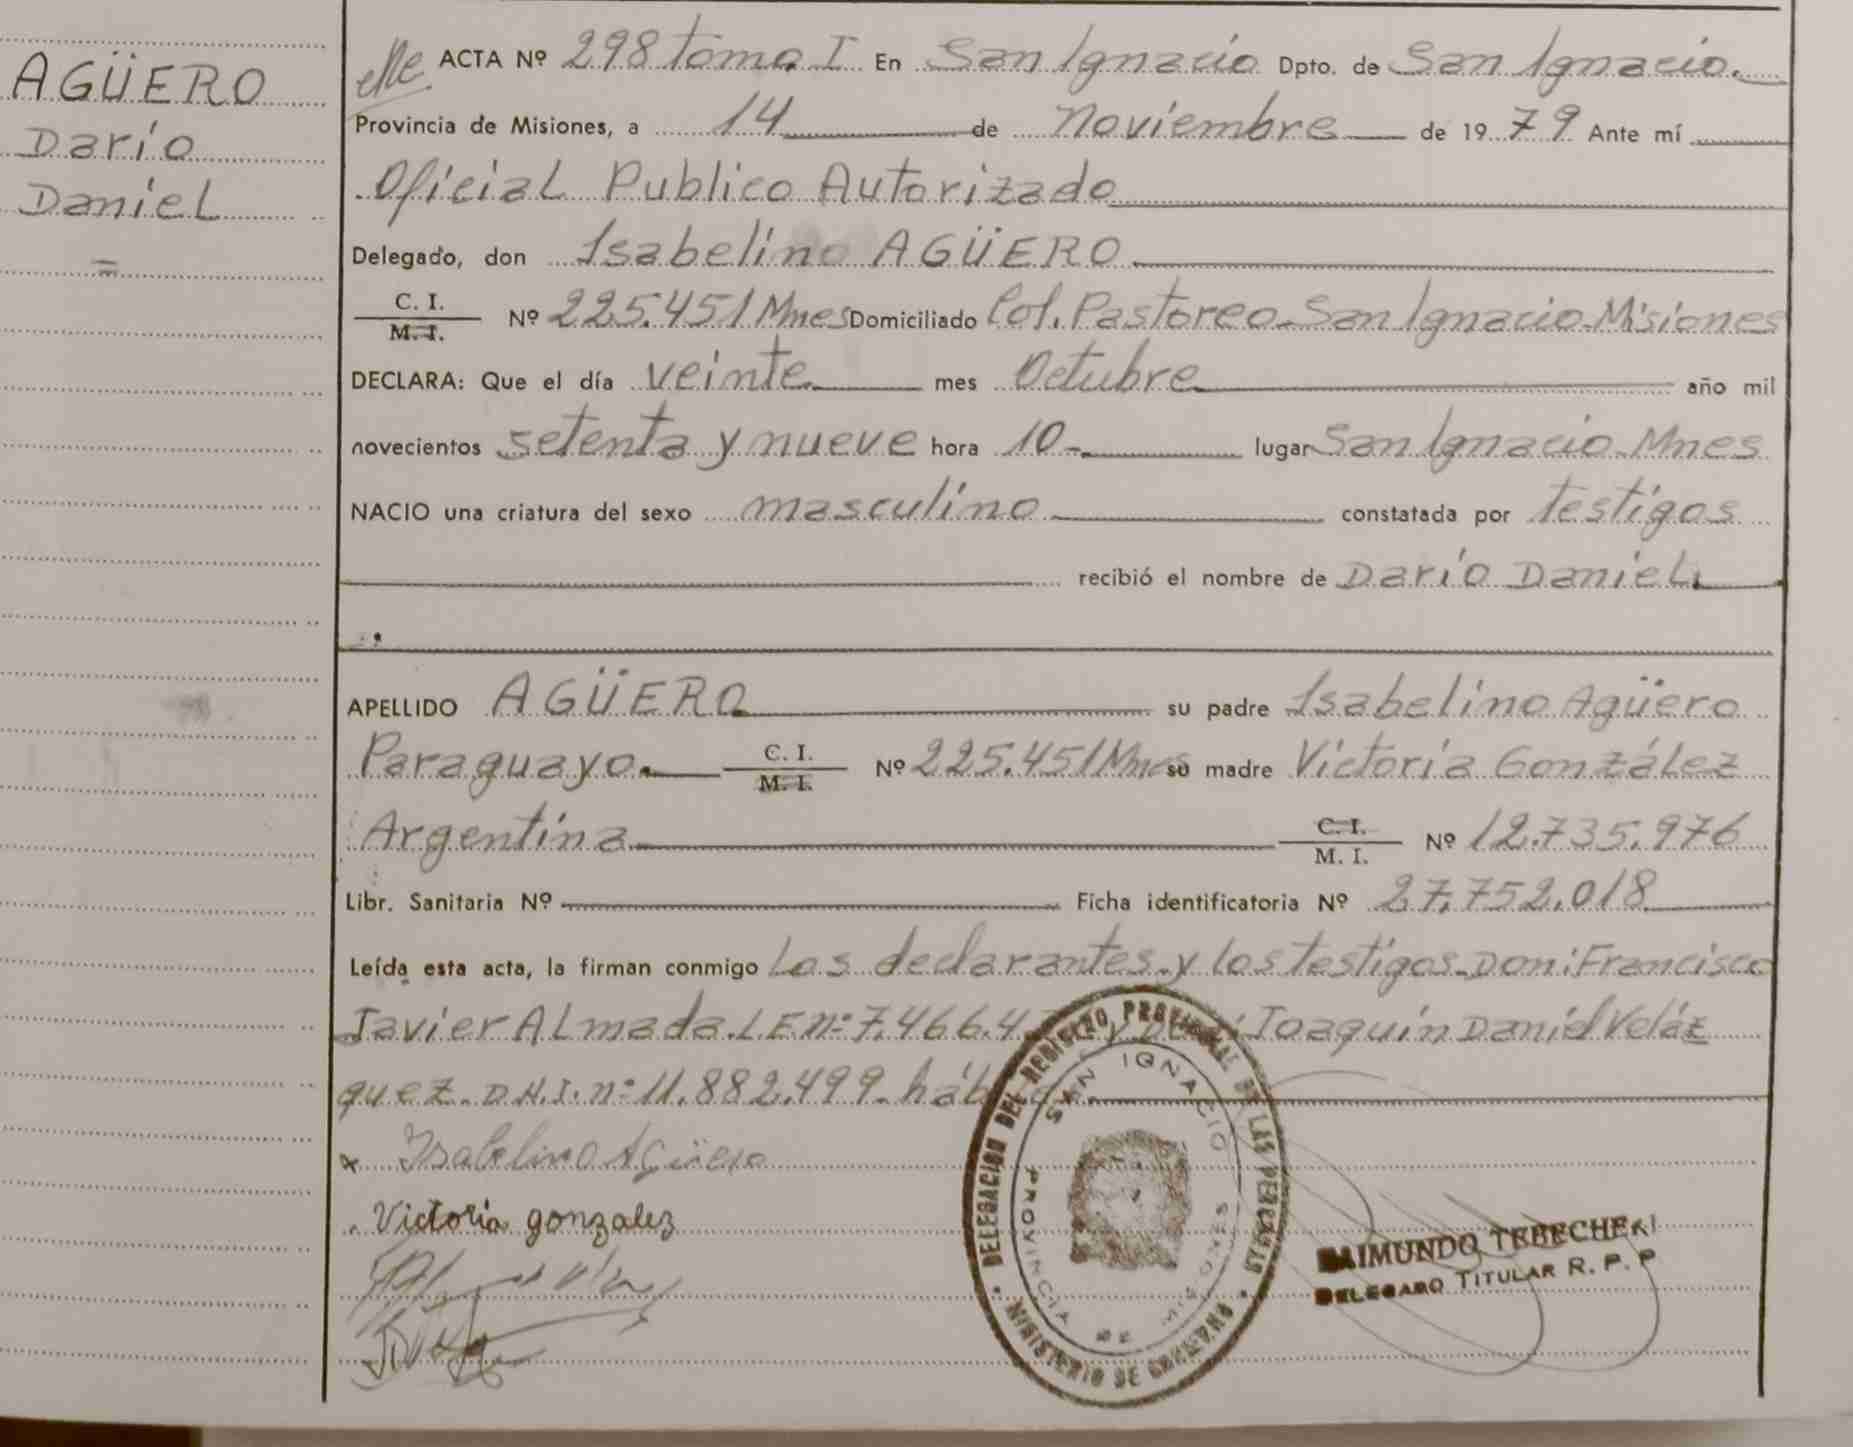 AGÜERO
Darío
Daniel
=
ACTA Nº 298 tomo I En San Ignacio Dpto. de San Ignacio.
Provincia de Misiones, a 14 de Noviembre de 1979 Ante mí
Oficial Publico Autorizado
Delegado, don Isabelino AGÜERO
C. I.
M. I.
Nº 225.451 Mnes Domiciliado Col. Pastoreo-San Ignacio-Misiones
DECLARA: Que el día veinte mes Octubre año mil
novecientos setenta y nueve hora 10- lugar San Ignacio-Mnes
NACIO una criatura del sexo masculino constatada por testigos
recibió el nombre de Darío Daniel
APELLIDO AGÜERO su padre Isabelino Agüero
Paraguayo C. I. M. I. Nº 225.451 Mnes su madre Victoria González
Argentina C. I. M. I. Nº 12.735.976
Libr. Sanitaria Nº Ficha identificatoria Nº 27.752.018
Leída esta acta, la firman conmigo Los declarantes y los testigos-Don: Francisco
Javier ALmada. L.E. nº 7.466.4 Joaquín Daniel Veláz
quez. D.N.I. nº 11.882.499.
Isabelino Agüero
Victoria gonzalez
DELEGACION DEL REGISTRO PROVINCIAL DE LAS PERSONAS
MINISTERIO DE GOBIERNO
SAN IGNACIO
PROVINCIA DE MISIONES
RAIMUNDO TEBECHERI
DELEGADO TITULAR R. P. P